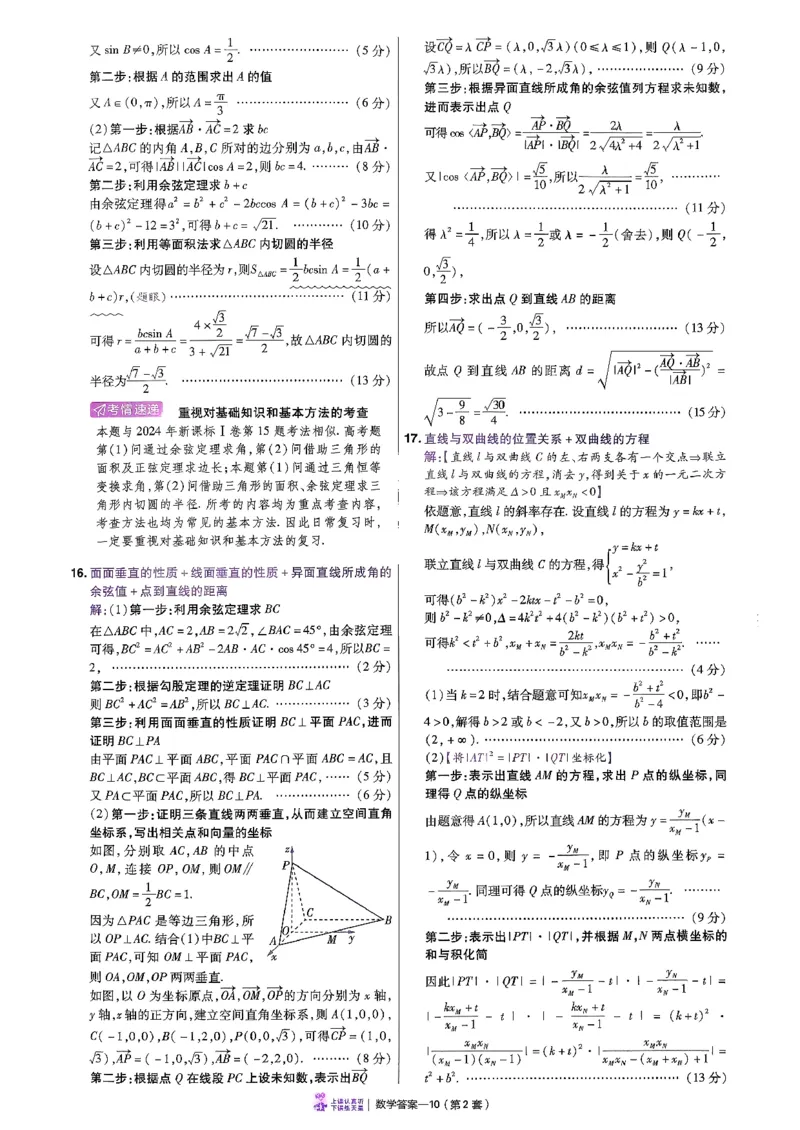 又 sin B≠0,所以 cos A = 1/2. …………………… (5分)
第二步:根据 A 的范围求出 A 的值
又 A∈(0,π),所以 A = π/3 …………………… (6分)
(2)第一步:根据 $\overrightarrow{AB}\cdot\overrightarrow{AC}$=2 求 bc
记△ABC 的内角 A,B,C 所对的边分别为 a,b,c,由 $\overrightarrow{AB}$·
$\overrightarrow{AC}$=2,可得|$\overrightarrow{AB}$||$\overrightarrow{AC}$|cos A=2,则 bc=4. ……… (8分)
第二步:利用余弦定理求 b+c
由余弦定理得 a²=b²+c²-2bccos A=(b+c)²-3bc=
(b+c)²-12=3²,可得 b+c=√21. ………… (10分)
第三步:利用等面积法求△ABC 内切圆的半径
设△ABC 内切圆的半径为 r,则 $S_{△ABC}$=1/2 bcsin A=1/2(a+
b+c)r,(题眼) …………………………… (11分)
可得 r=$\frac{bc\sin A}{a+b+c}$=$\frac{4×\frac{\sqrt{3}}{2}}{3+\sqrt{21}}$=$\frac{\sqrt{7}-\sqrt{3}}{2}$,故△ABC 内切圆的
半径为 $\frac{\sqrt{7}-\sqrt{3}}{2}$. …………………………… (13分)
考情速递 重视对基础知识和基本方法的考查
本题与 2024 年新课标Ⅰ卷第 15 题考法相似.高考题
第(1)问通过余弦定理求角,第(2)问借助三角形的
面积及正弦定理求边长;本题第(1)问通过三角恒等
变换求角,第(2)问借助三角形的面积、余弦定理求三
角形内切圆的半径.所考的内容均为重点考查内容,
考查方法也均为常见的基本方法.因此日常复习时,
一定要重视对基础知识和基本方法的复习.
16.面面垂直的性质+线面垂直的性质+异面直线所成角的
余弦值+点到直线的距离
解:(1)第一步:利用余弦定理求 BC
在△ABC 中,AC=2,AB=2√2,∠BAC=45°,由余弦定理
可得,BC²=AC²+AB²-2AB·AC·cos 45°=4,所以 BC=
2, …………………………………… (2分)
第二步:根据勾股定理的逆定理证明 BC⊥AC
则 BC²+AC²=AB²,所以 BC⊥AC. ………… (3分)
第三步:利用面面垂直的性质证明 BC⊥平面 PAC,进而
证明 BC⊥PA
由平面 PAC⊥平面 ABC,平面 PAC∩平面 ABC=AC,且
BC⊥AC,BC⊂平面 ABC,得 BC⊥平面 PAC, …… (5分)
又 PA⊂平面 PAC,所以 BC⊥PA. …………… (6分)
(2)第一步:证明三条直线两两垂直,从而建立空间直角
坐标系,写出相关点和向量的坐标
如图,分别取 AC,AB 的中点
O,M,连接 OP,OM,则 OM∥
BC,OM=1/2 BC=1.
因为△PAC 是等边三角形,所
以 OP⊥AC.结合(1)中 BC⊥平
面 PAC,可知 OM⊥平面 PAC,
z
P
C
B
O
A
M
y
x
则 OA,OM,OP 两两垂直.
如图,以 O 为坐标原点,$\overrightarrow{OA}$,$\overrightarrow{OM}$,$\overrightarrow{OP}$的方向分别为 x 轴,
y 轴,z 轴的正方向,建立空间直角坐标系,则 A(1,0,0),
C(-1,0,0),B(-1,2,0),P(0,0,√3),可得$\overrightarrow{CP}$=(1,0,
√3),$\overrightarrow{AP}$=(-1,0,√3),$\overrightarrow{AB}$=(-2,2,0). ……… (8分)
第二步:根据点 Q 在线段 PC 上设未知数,表示出$\overrightarrow{BQ}$
设$\overrightarrow{CQ}$=λ$\overrightarrow{CP}$=(λ,0,√3λ)(0≤λ≤1),则 Q(λ-1,0,
√3λ),所以$\overrightarrow{BQ}$=(λ,-2,√3λ), ………………… (9分)
第三步:根据异面直线所成角的余弦值列方程求未知数,
进而表示出点 Q
可得 cos〈$\overrightarrow{AP}$,$\overrightarrow{BQ}$〉=$\frac{\overrightarrow{AP}\cdot\overrightarrow{BQ}}{|\overrightarrow{AP}|\cdot|\overrightarrow{BQ}|}$=$\frac{2λ}{2\sqrt{4λ^2+4}}$=$\frac{λ}{2\sqrt{λ^2+1}}$.
又|cos〈$\overrightarrow{AP}$,$\overrightarrow{BQ}$〉|=$\frac{\sqrt{5}}{10}$,所以$\frac{λ}{2\sqrt{λ^2+1}}$=$\frac{\sqrt{5}}{10}$, …………
…………………………………… (11分)
得 λ²=1/4,所以 λ=1/2 或 λ=-1/2(舍去),则 Q(-1/2,
0,$\frac{\sqrt{3}}{2}$),
第四步:求出点 Q 到直线 AB 的距离
所以$\overrightarrow{AQ}$=(-3/2,0,$\frac{\sqrt{3}}{2}$), …………………… (13分)
故点 Q 到直线 AB 的距离 d=$\sqrt{|\overrightarrow{AQ}|^2-(\frac{\overrightarrow{AQ}\cdot\overrightarrow{AB}}{|\overrightarrow{AB}|})^2}$=
$\sqrt{3-\frac{9}{8}}$=$\frac{\sqrt{30}}{4}$. …………………………… (15分)
17.直线与双曲线的位置关系+双曲线的方程
解:【直线 l 与双曲线 C 的左、右两支各有一个交点⇒联立
直线 l 与双曲线的方程,消去 y,得到关于 x 的一元二次方
程⇒该方程满足 Δ>0 且 $x_Mx_N$<0】
依题意,直线 l 的斜率存在.设直线 l 的方程为 y=kx+t,
M($x_M$,$y_M$),N($x_N$,$y_N$),
联立直线 l 与双曲线 C 的方程,得$\begin{cases}y=kx+t\\x^2-\frac{y^2}{b^2}=1\end{cases}$,
可得(b²-k²)x²-2ktx-t²-b²=0,
则 b²-k²≠0,Δ=4k²t²+4(b²-k²)(b²+t²)>0,
可得 k²<t²+b²,$x_M+x_N$=$\frac{2kt}{b^2-k^2}$,$x_Mx_N$=-$\frac{b^2+t^2}{b^2-k^2}$. ……
…………………………………… (4分)
(1)当 k=2 时,结合题意可知 $x_Mx_N$=-$\frac{b^2+t^2}{b^2-4}$<0,即 b²-
4>0,解得 b>2 或 b<-2,又 b>0,所以 b 的取值范围是
(2,+∞). …………………………… (6分)
(2)【将|AT|²=|PT|·|QT|坐标化】
第一步:表示出直线 AM 的方程,求出 P 点的纵坐标,同
理得 Q 点的纵坐标
由题意得 A(1,0),所以直线 AM 的方程为 y=$\frac{y_M}{x_M-1}$(x-
1),令 x=0,则 y=-$\frac{y_M}{x_M-1}$,即 P 点的纵坐标 $y_P$=
-$\frac{y_M}{x_M-1}$.同理可得 Q 点的纵坐标 $y_Q$=-$\frac{y_N}{x_N-1}$. ………
…………………………………… (9分)
第二步:表示出|PT|·|QT|,并根据 M,N 两点横坐标的
和与积化简
因此|PT|·|QT|=|-$\frac{y_M}{x_M-1}$-t|·|-$\frac{y_N}{x_N-1}$-t|=
|-$\frac{kx_M+t}{x_M-1}$-t|·|-$\frac{kx_N+t}{x_N-1}$-t|=(k+t)²·
|$\frac{x_Mx_N}{(x_M-1)(x_N-1)}$|=(k+t)²·|$\frac{x_Mx_N}{x_Mx_N-(x_M+x_N)+1}$|=
t²+b². ……………………………… (13分)
上课认真听
下课练天星
数学答案—10(第2套)